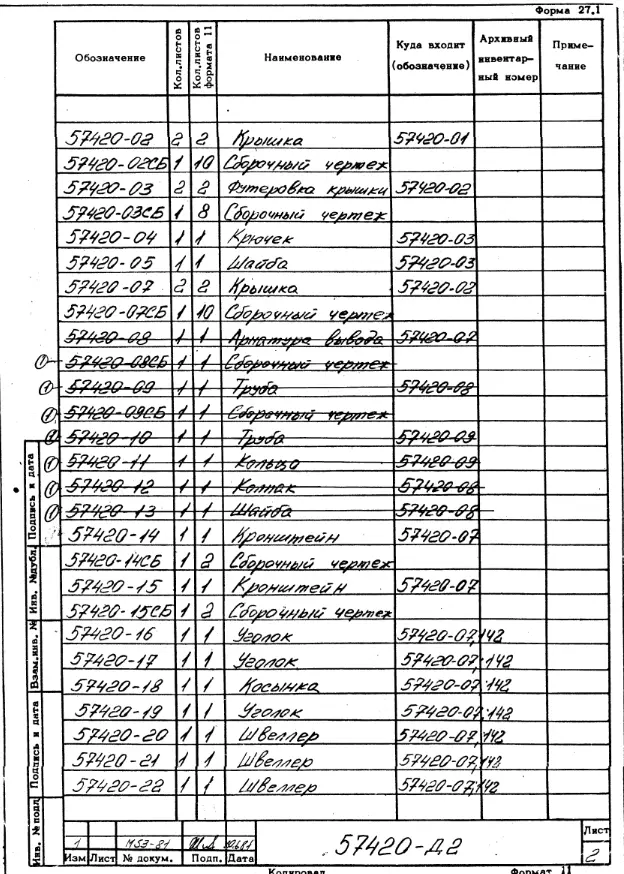 Форма 27.1
Обозначение Кол.листов Кол.листов формата 11 Наименование Куда входит (обозначение) Архивный инвентарный номер Примечание
57420-02 2 2 Крышка 57420-01
57420-02СБ 1 10 Сборочный чертеж
57420-03 2 2 Футеровка крышки 57420-02
57420-03СБ 1 8 Сборочный чертеж
57420-04 1 1 Крючек 57420-03
57420-05 1 1 Шайба 57420-03
57420-07 2 2 Крышка 57420-02
57420-07СБ 1 10 Сборочный чертеж
57420-08 1 1 Арматура вывода 57420-07
① 57420-08СБ 1 1 Сборочный чертеж
① 57420-09 1 1 Труба 57420-08
① 57420-09СБ 1 1 Сборочный чертеж
① 57420-10 1 1 Труба 57420-09
① 57420-11 1 1 Кольцо 57420-09
① 57420-12 1 1 Колпак 57420-08
① 57420-13 1 1 Шайба 57420-08
57420-14 1 1 Кронштейн 57420-07
57420-14СБ 1 2 Сборочный чертеж
57420-15 1 1 Кронштейн 57420-07
57420-15СБ 1 2 Сборочный чертеж
57420-16 1 1 Уголок 57420-07,142
57420-17 1 1 Уголок 57420-07,142
57420-18 1 1 Косынка 57420-07,142
57420-19 1 1 Уголок 57420-07,142
57420-20 1 1 Швеллер 57420-07,142
57420-21 1 1 Швеллер 57420-07,142
57420-22 1 1 Швеллер 57420-07,142
Подпись и дата
Инв. №дубл.
Взам.инв. №
Подпись и дата
Инв. № подл
1 М53-81
Изм Лист № докум. Подп. Дата
57420-Д2
Лист
2
Копировал Формат 11